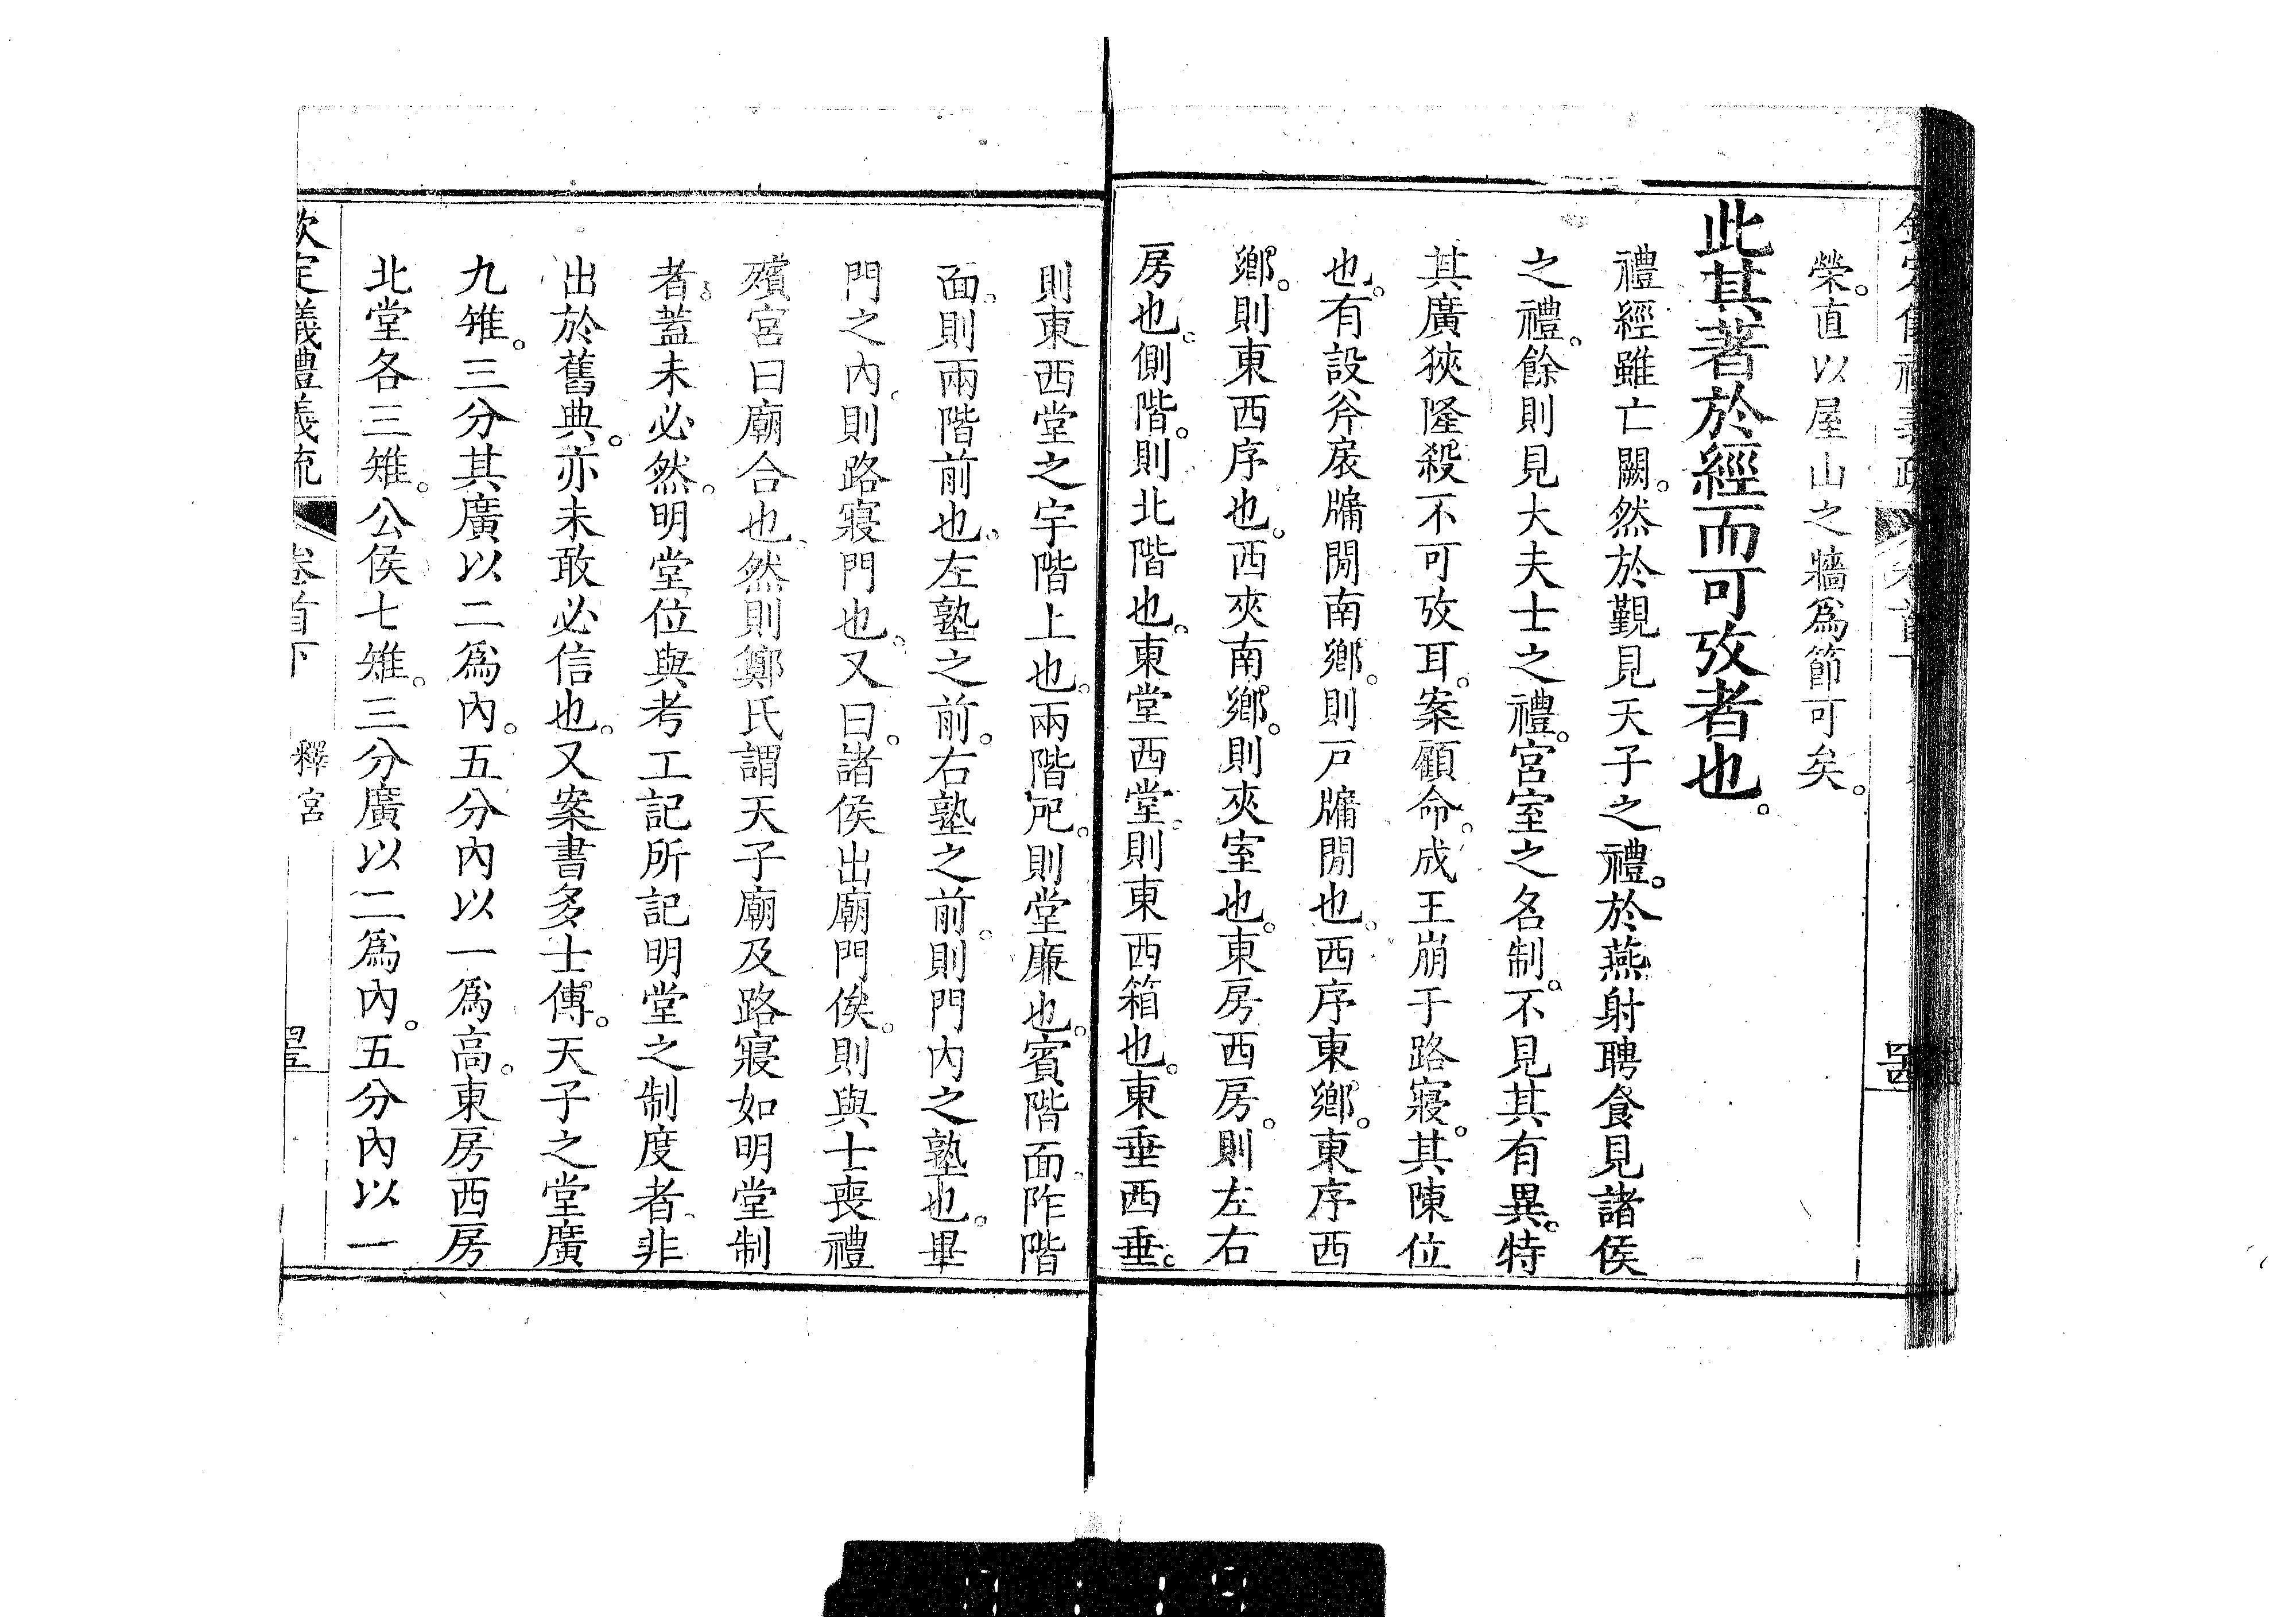 榮。直以屋山之牆爲節可矣。
此其著於經而可攷者也。
禮經雖亡闕。然於覲見天子之禮。於燕射聘食見諸侯
之禮。餘則見大夫士之禮。宮室之名制。不見其有異。特
其廣狹隆殺不可攷耳。案顧命。成王崩于路寢。其陳位
也。有設斧扆牖閒南鄉。則戶牖閒也。西序東鄉。東序西
鄉。則東西序也。西夾南鄉。則夾室也。東房西房。則左右
房也。側階。則北階也。東堂西堂。則東西箱也。東垂西垂。
則東西堂之宇階上也。兩階戺。則堂廉也。賓階面。阼階
面。則兩階前也。左塾之前。右塾之前。則門內之塾也。畢
門之內。則路寢門也。又曰。諸侯出廟門俟。則與士喪禮
殯宮曰廟合也。然則鄭氏謂天子廟及路寢如明堂制
者。蓋未必然。明堂位與考工記所記明堂之制度者。非
出於舊典。亦未敢必信也。又案書多士傳。天子之堂廣
九雉。三分其廣以二爲內。五分內以一爲高。東房西房
北堂各三雉。公侯七雉。三分廣以二爲內。五分內以一
欽定義禮義疏 卷首下 釋宮